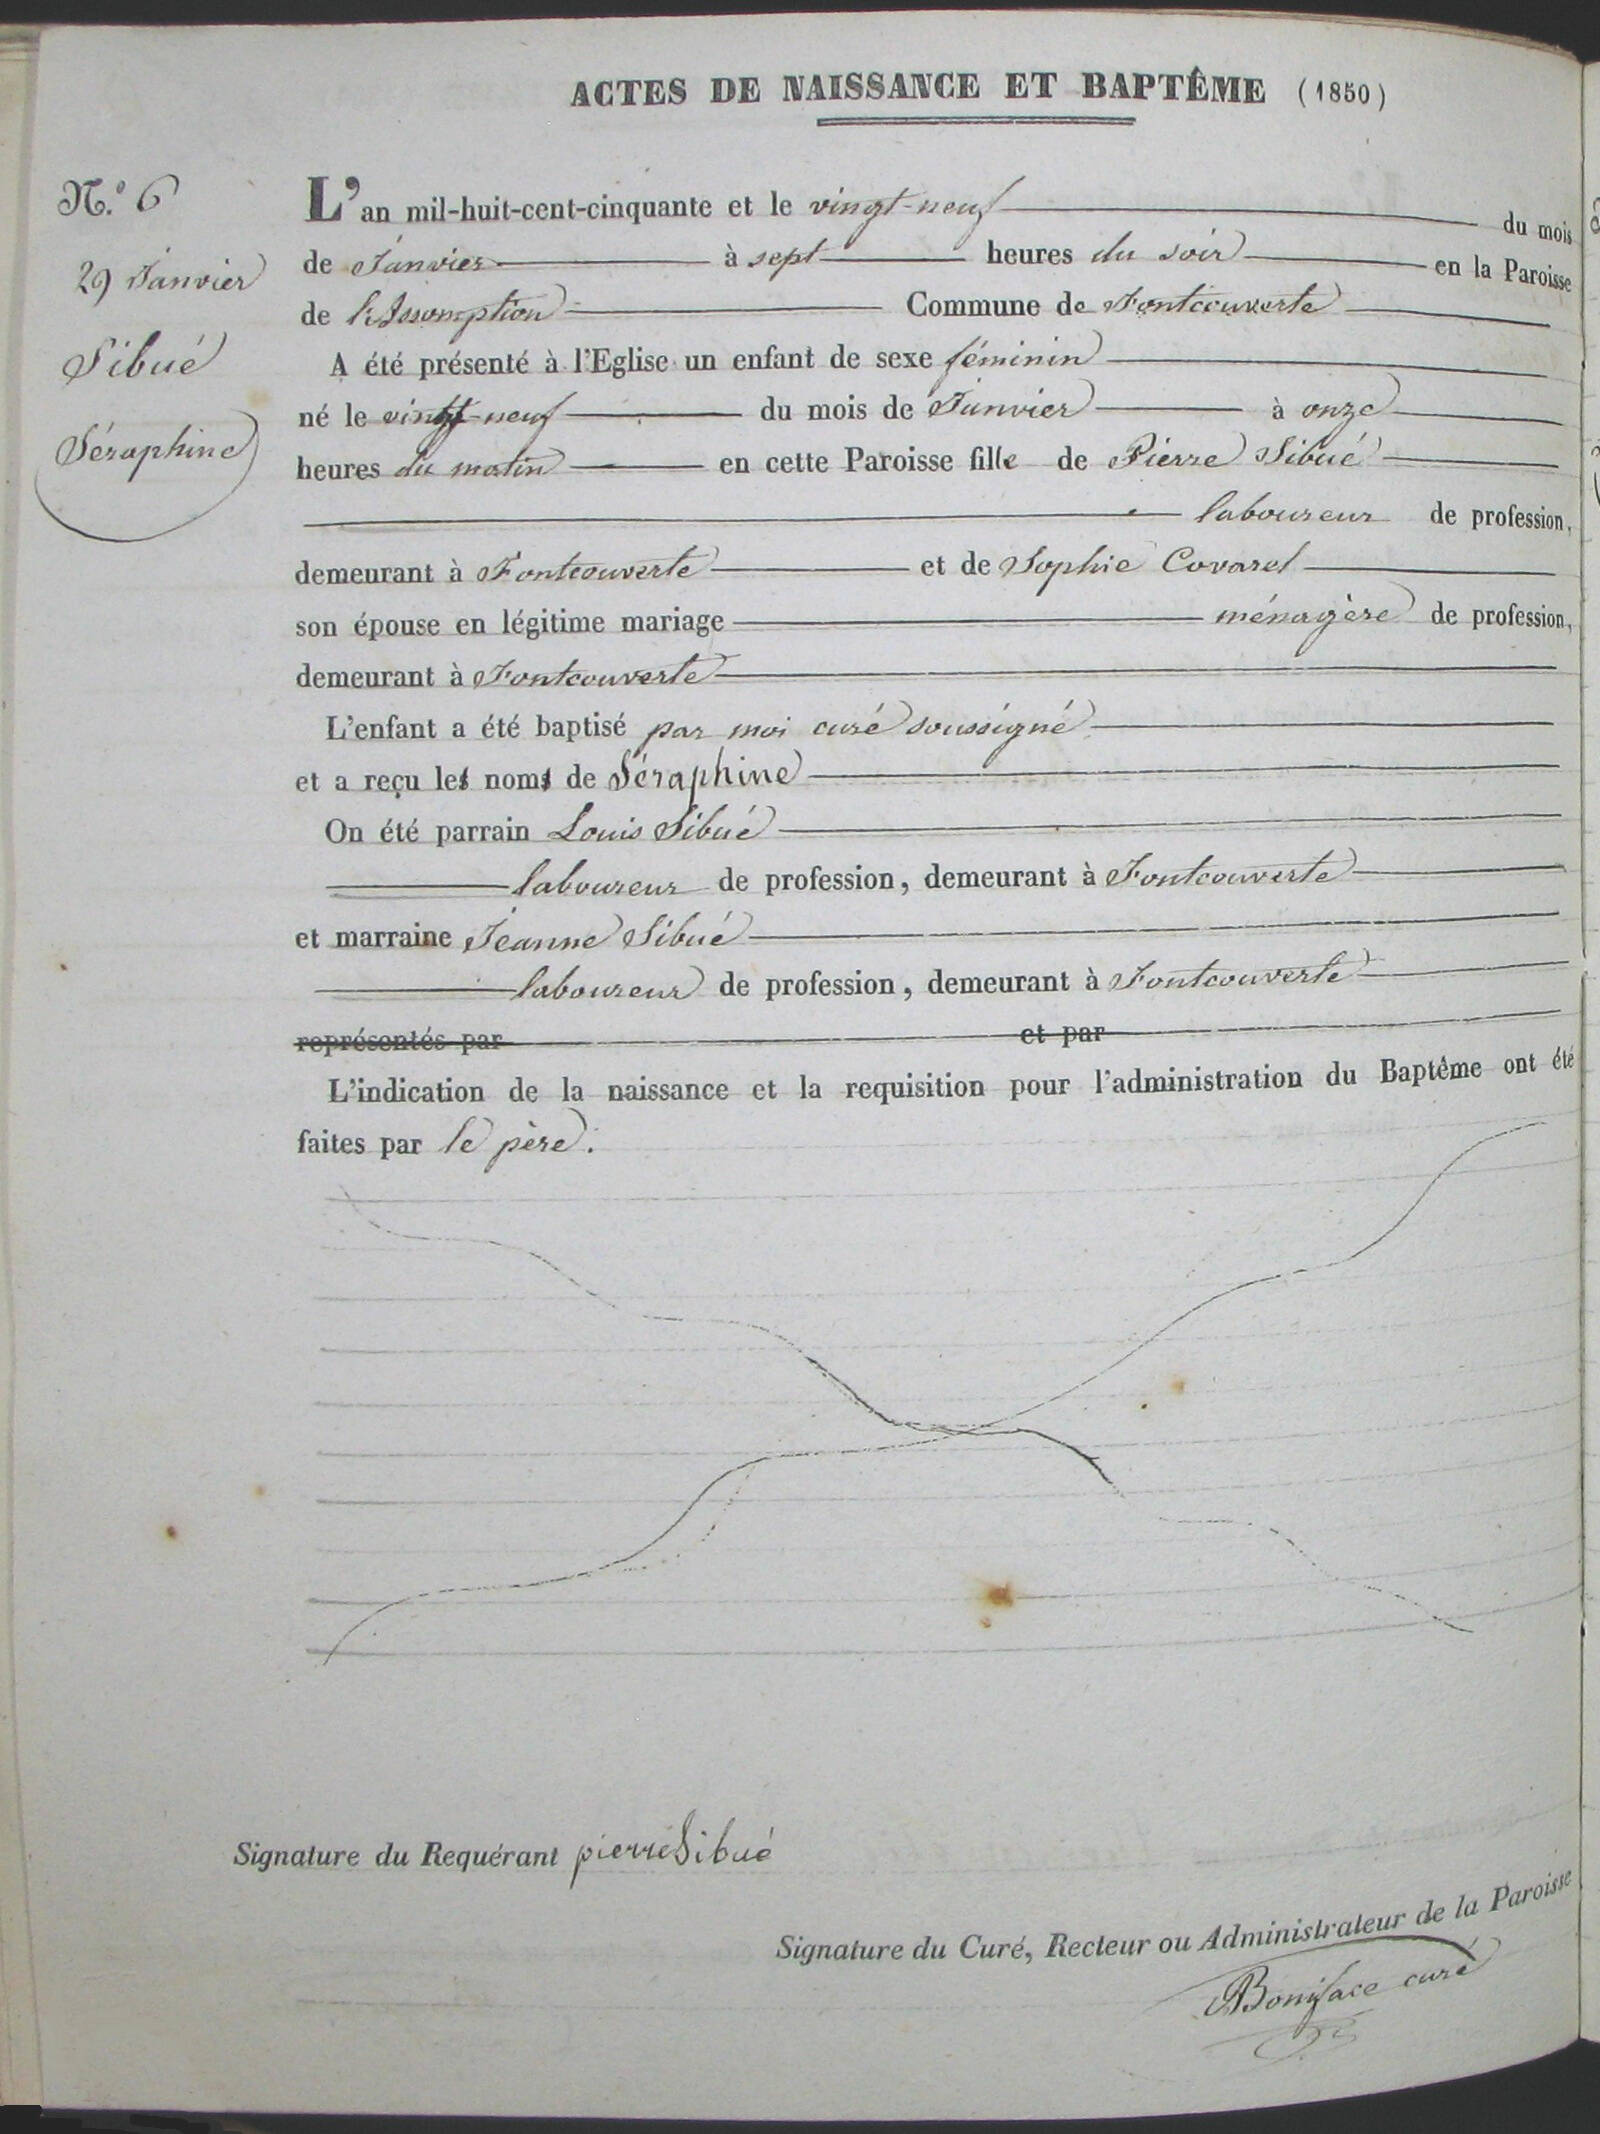 ACTES DE NAISSANCE ET BAPTÊME (1850)
N.º 6
29 Janvier
Sibué
Séraphine
L'an mil-huit-cent-cinquante et le vingt-neuf du mois
de Janvier à sept heures du soir en la Paroisse
de l'Assomption Commune de Fontcouverte
A été présenté à l'Eglise un enfant de sexe féminin
né le vingt-neuf du mois de Janvier à onze
heures du matin en cette Paroisse fille de Pierre Sibué
laboureur de profession,
demeurant à Fontcouverte et de Sophie Covarel
son épouse en légitime mariage ménagère de profession,
demeurant à Fontcouverte
L'enfant a été baptisé par moi curé soussigné
et a reçu les noms de Séraphine
On été parrain Louis Sibué
laboureur de profession, demeurant à Fontcouverte
et marraine Jeanne Sibué
laboureur de profession, demeurant à Fontcouverte
représentés par et par
L'indication de la naissance et la requisition pour l'administration du Baptême ont été
faites par le père.
Signature du Requérant pierre Sibué
Signature du Curé, Recteur ou Administrateur de la Paroisse
Boniface curé